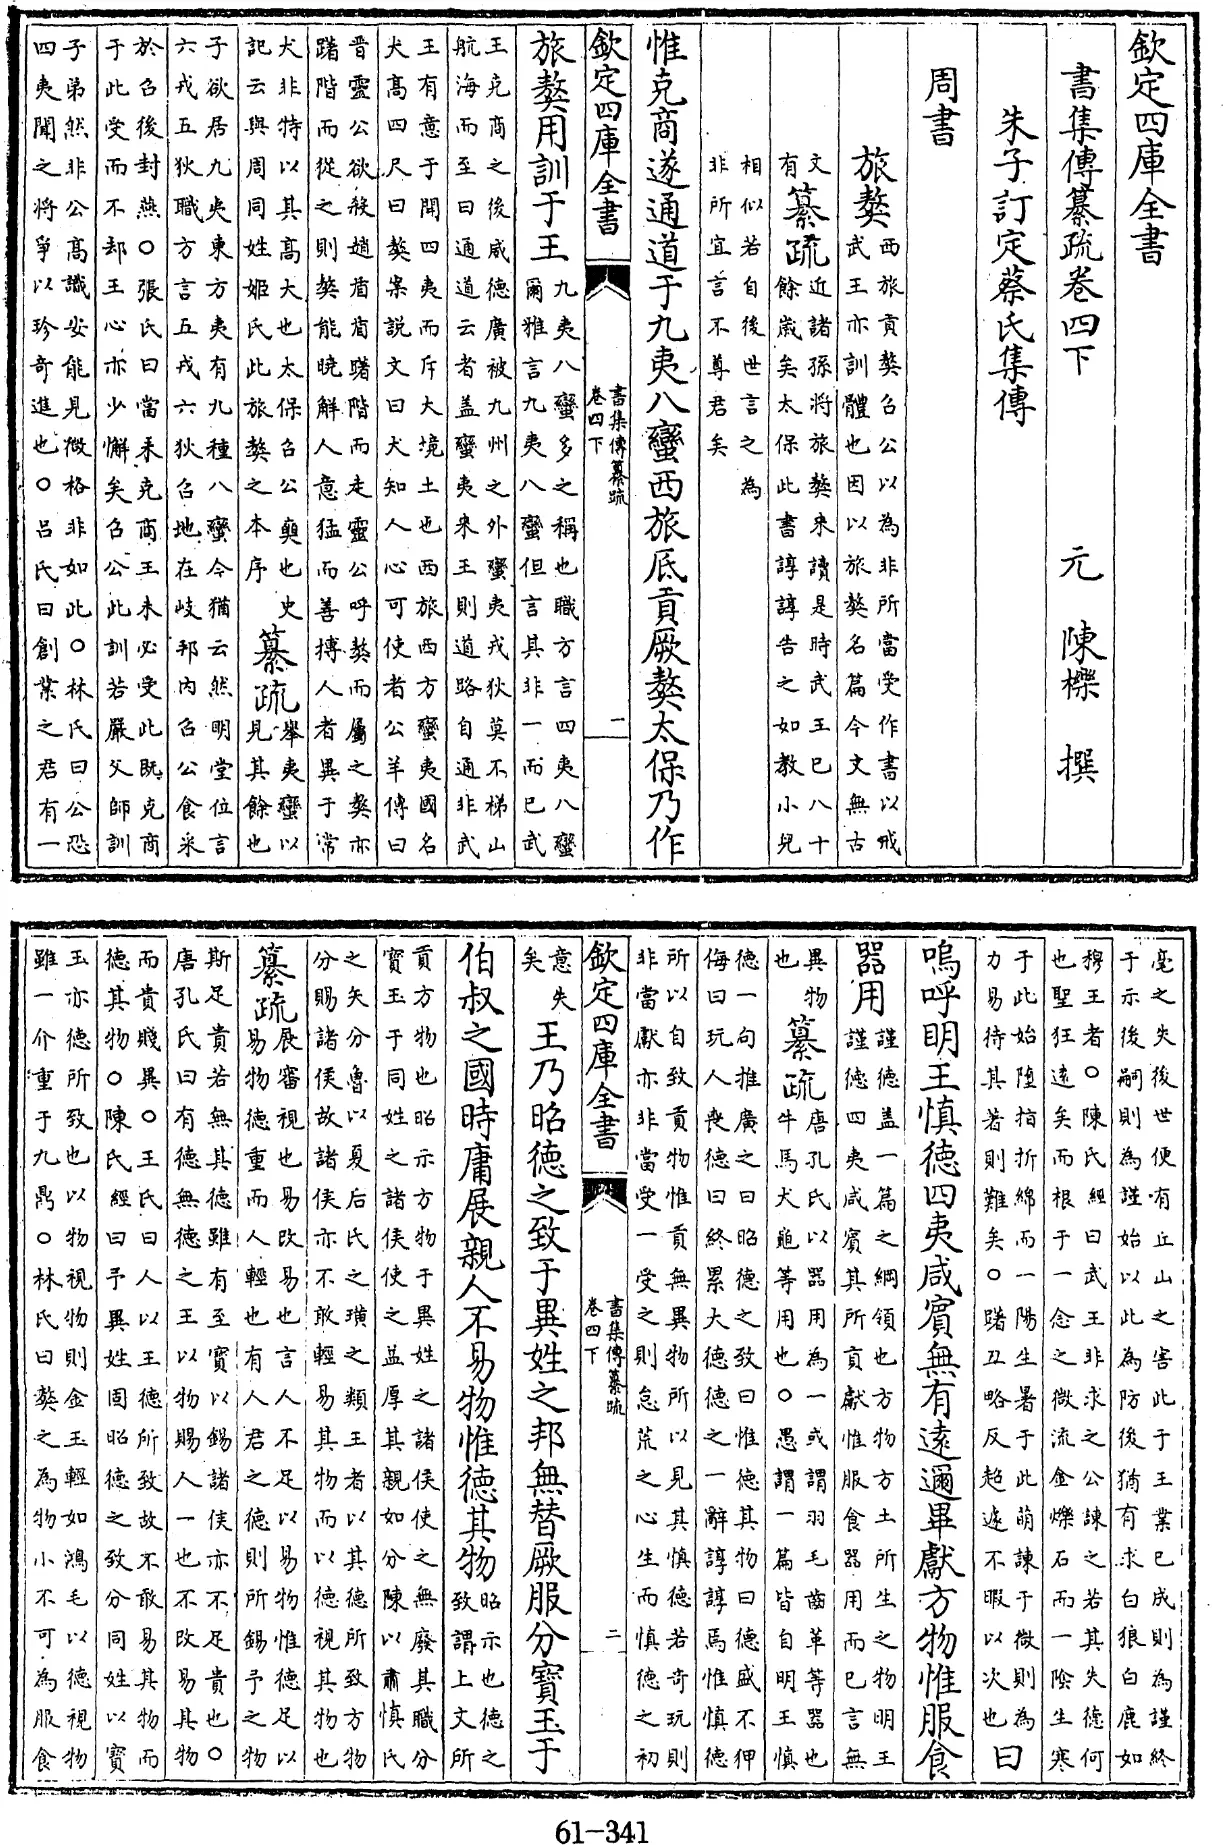 欽定四庫全書
書集傳纂疏卷四下 元 陳櫟 撰
朱子訂定蔡氏集傳
周書
旅獒 西旅貢獒召公以為非所當受作書以戒武王亦訓體也因以旅獒名篇今文無古
文有 纂疏 近諸孫將旅獒來讀是時武王已八十餘歲矣太保此書諄諄告之如教小兒
相似若自後世言之為非所宜言不尊君矣
惟克商遂通道于九夷八蠻西旅底貢厥獒太保乃作
欽定四庫全書 書集傳纂疏 卷四下 一
旅獒用訓于王 九夷八蠻多之稱也職方言四夷八蠻爾雅言九夷八蠻但言其非一而已武
王克商之後威德廣被九州之外蠻夷戎狄莫不梯山航海而至曰通道云者盖蠻夷來王則道路自通非武
王有意于開四夷而斥大境土也西旅西方蠻夷國名犬高四尺曰獒案説文曰犬知人心可使者公羊傳曰
晉靈公欲殺趙盾盾躇階而走靈公呼獒而屬之獒亦躇階而從之則獒能曉解人意猛而善搏人者異于常
犬非特以其高大也太保召公奭也史記云與周同姓姬氏此旅獒之本序 纂疏 舉夷蠻以見其餘也
子欲居九夷東方夷有九種八蠻今猶云然明堂位言六戎五狄職方言五戎六狄召地在岐邦内召公食采
於召後封燕○張氏曰當未克商王未必受此既克商于此受而不却王心亦少懈矣召公此訓若嚴父師訓
子弟然非公高識安能見微格非如此○林氏曰公恐四夷聞之將爭以珍奇進也○吕氏曰創業之君有一
毫之失後世便有丘山之害此于王業已成則為謹終于示後嗣則為謹始以此為防後猶有求白狼白鹿如
穆王者○陳氏經曰武王非求之公諫之若其失德何也聖狂遠矣而根于一念之微流金爍石而一隂生寒
于此始墮指折綿而一陽生暑于此萌諫于微則為力易待其著則難矣○躇丑略反超遽不暇以次也 曰
嗚呼明王慎德四夷咸賓無有遠邇畢獻方物惟服食
器用 謹德盖一篇之綱領也方物方土所生之物明王謹德四夷咸賓其所貢獻惟服食器用而已言無
異物也 纂疏 唐孔氏以器用為一或謂羽毛齒革等器也牛馬犬龜等用也○愚謂一篇皆自明王慎
德一句推廣之曰昭德之致曰惟德其物曰德盛不狎侮曰玩人喪德曰終累大德德之一辭諄諄焉惟慎德
所以自致貢物惟貢無異物所以見其慎德若奇玩則非當獻亦非當受一受之則怠荒之心生而慎德之初
欽定四庫全書 書集傳纂疏 卷四下 二
意失矣 王乃昭德之致于異姓之邦無替厥服分寶玉于
伯叔之國時庸展親人不易物惟德其物 昭示也德之致謂上文所
貢方物也昭示方物于異姓之諸侯使之無廢其職分寶玉于同姓之諸侯使之益厚其親如分陳以肅慎氏
之矢分魯以夏后氏之璜之類王者以其德所致方物分賜諸侯故諸侯亦不敢輕易其物而以德視其物也
纂疏 展審視也易改易也言人不足以易物惟德足以易物德重而人輕也有人君之德則所錫予之物
斯足貴若無其德雖有至寶以錫諸侯亦不足貴也○唐孔氏曰有德無德之王以物賜人一也不改易其物
而貴賤異○王氏曰人以王德所致故不敢易其物而德其物○陳氏經曰予異姓固昭德之致分同姓以寶
玉亦德所致也以物視物則金玉輕如鴻毛以德視物雖一介重于九鼎○林氏曰獒之為物小不可為服食
61-341